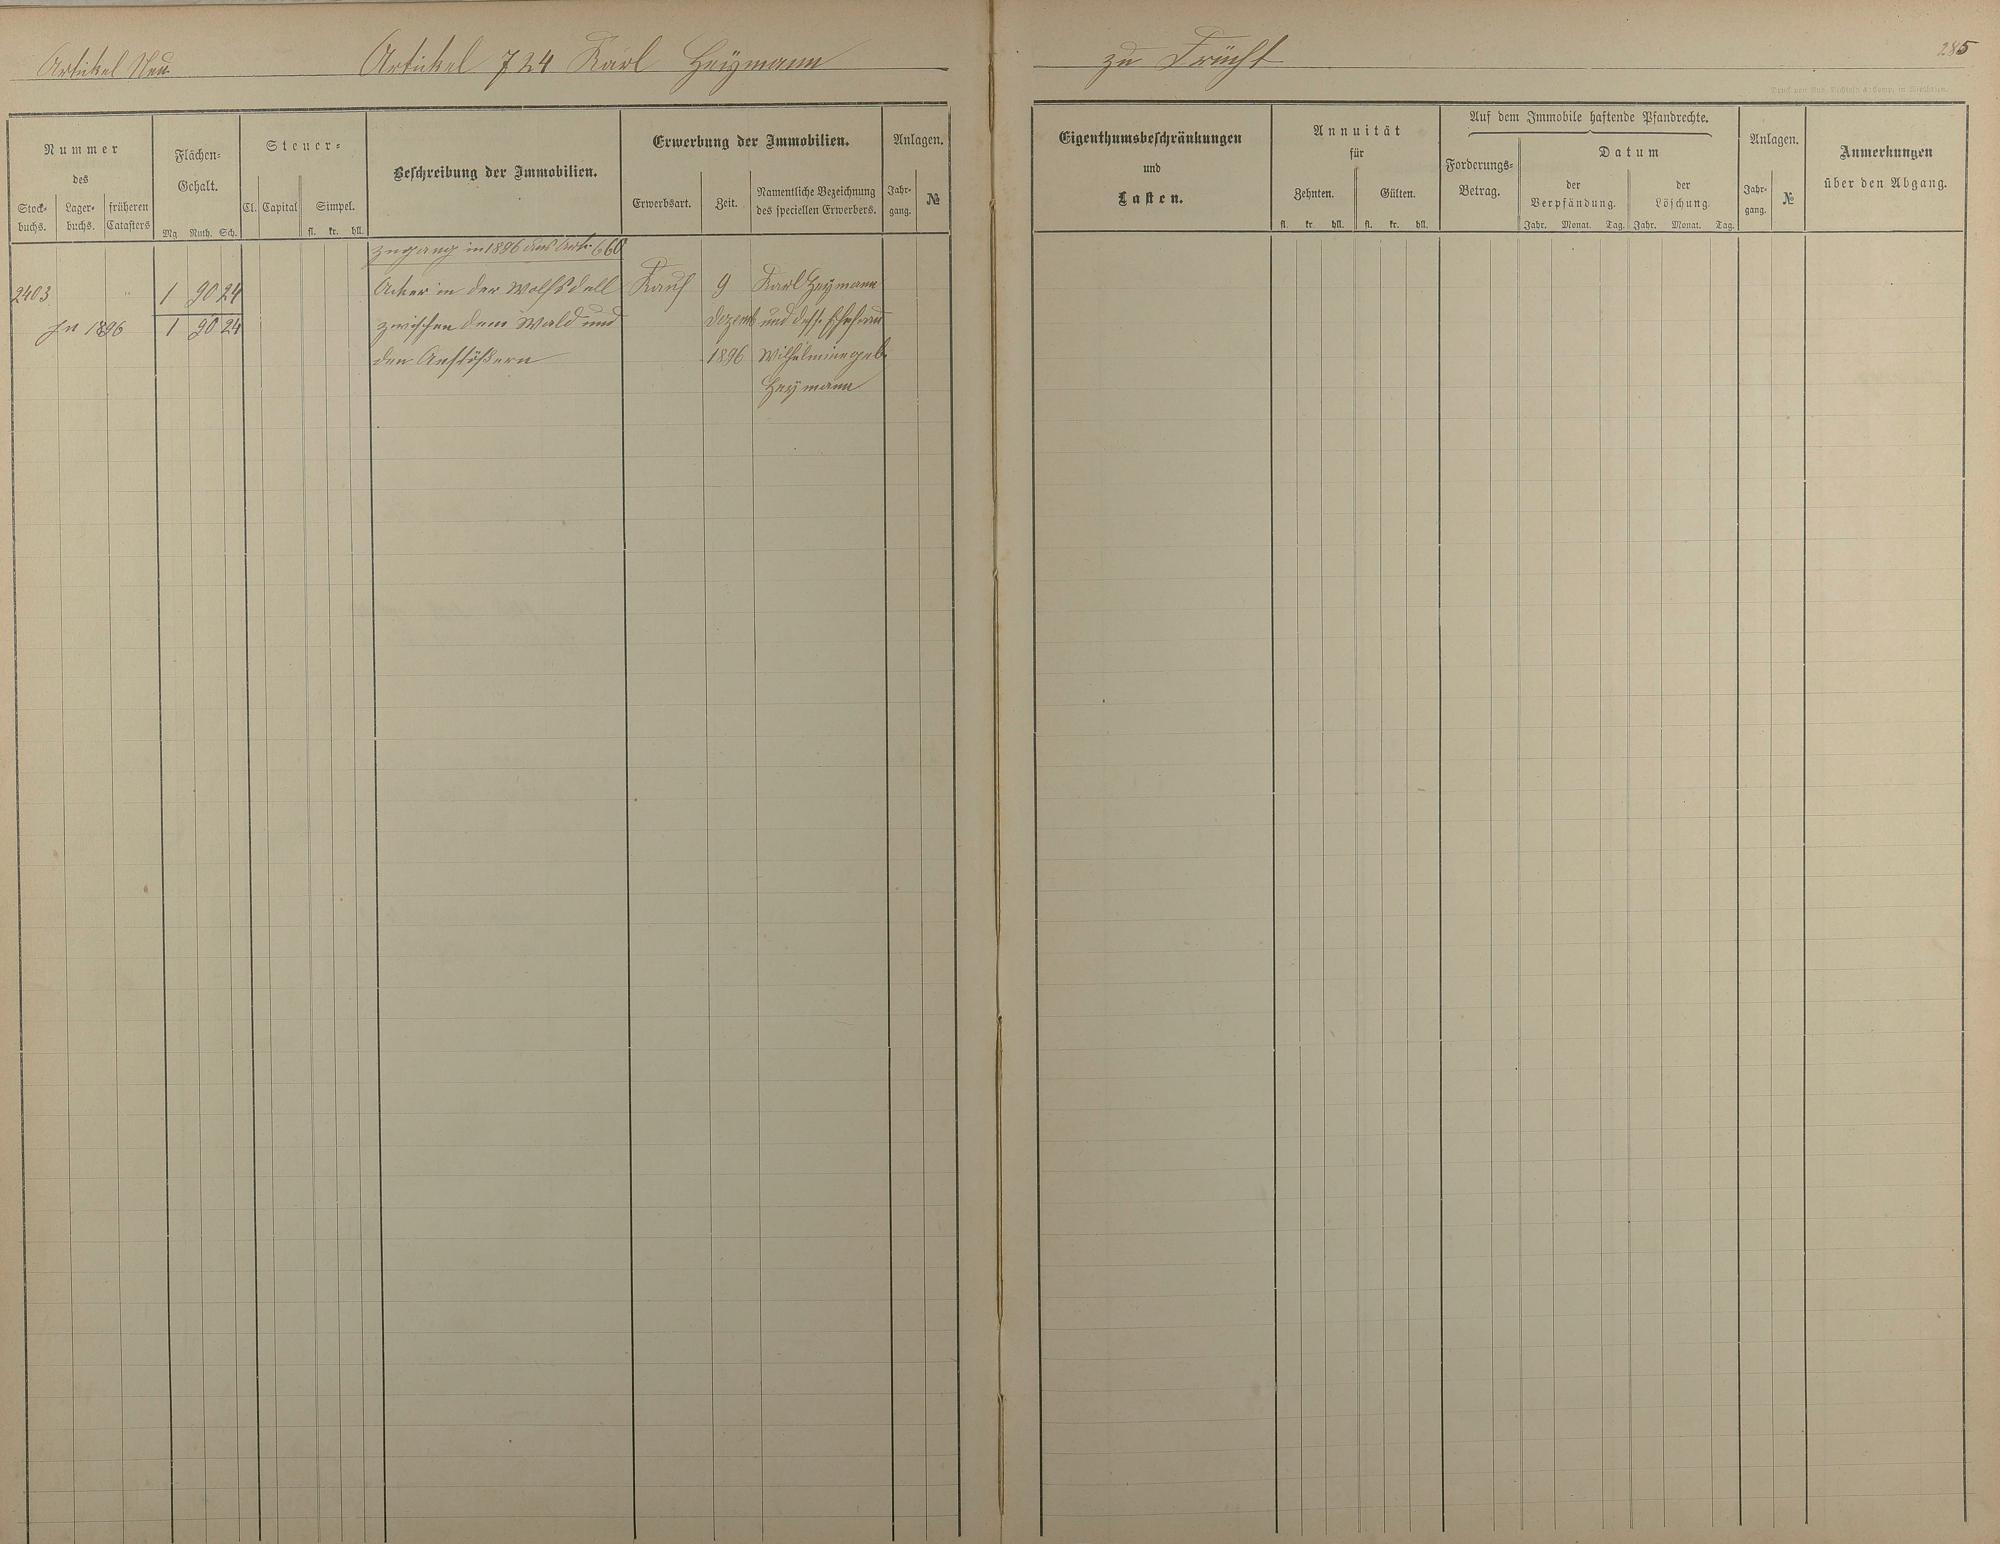 Artikel Neu. Artikel 724 Karl Heymann zu Frücht 285
Nummer
des
Stock-
buchs.
Lager-
buchs.
früheren
Catasters
Flächen-
Gehalt.
Mg Ruth. Sch.
Steuer-
Cl. Capital Simpel.
fl. kr. hll.
Beschreibung der Immobilien.
Erwerbung der Immobilien.
Erwerbsart. Zeit.
Namentliche Bezeichnung
des speciellen Erwerbers.
Anlagen.
Jahr-
gang.
№
Eigenthumsbeschränkungen
und
Lasten.
Annuität
für
Zehnten. Gülten.
fl. kr. hll. fl. kr. hll.
Auf dem Immobile haftende Pfandrechte.
Forderungs-
Betrag.
Datum
der
Verpfändung.
Jahr. Monat. Tag.
der
Löschung
Jahr. Monat. Tag.
Anlagen.
Jahr-
gang.
№
Anmerkungen
über den Abgang.
Zugang in 1896 aus Art. 660
2403 " 1 90 24 Acker in der Wolfsdell Kauf 9 Karl Heymann
In 1896 1 90 24 zwischen dem Wald und Dezemb und dess. Ehefrau
den Anstößern 1896 Wilhelmine geb.
Heymann